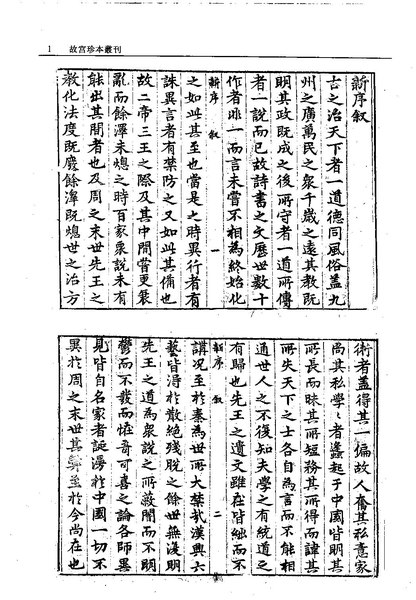 1 故宮珍本叢刊
新序叙
古之治天下者一道德同風俗盖九
州之廣萬民之衆千歳之遠其教既
明其政既成之後所守者一道所傳
者一說而已故詩書之文歷世數十
作者非一而言未嘗不相為終始化
新序 叙 一
之如此其至也當是之時異行者有
誅異言者有禁防之又如此其備也
故二帝三王之際及其中間嘗更衰
亂而餘澤未熄之時百家衆說未有
能出其間者也及周之末世先王之
教化法度既廢餘澤既熄世之治方
術者盖得其一偏故人奮其私意家
尚其私學〻者蠭起于中國皆明其
所長而昧其所短務其所得而諱其
所失天下之士各自為言而不能相
通世人之不復知夫學之有統道之
有歸也先王之遺文雖在皆絀而不
新序 叙 二
講况至於秦為世所大禁哉漢興六
藝皆得於散絶殘脫之餘世無復明
先王之道為衆說之所蔽闇而不明
鬱而不發而怪奇可喜之論各師異
見皆自名家者誕漫於中國一切不
異於周之末世其弊至於今尚在也